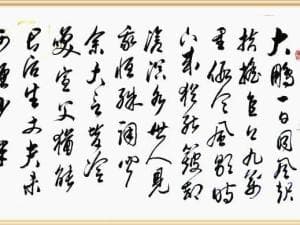 大鵬一日同風起
扶搖直上九萬
里假令風歇時
下來猶能簸卻
滄溟水世人見
我恒殊調聞
余大言皆冷
笑宣父猶能
畏後生丈夫未
可輕年少